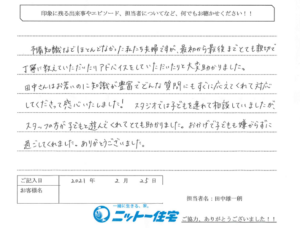 印象に残る出来事やエピソード、担当者についてなど、何でもお聴かせください!!
予備知識などほとんどなかった私たち夫婦ですが、最初から最後までとても親切で
丁寧に教えていただいたりアドバイスをしていただいたりと大変助かりました。
田中さんはお若いのに知識が豊富でどんな質問にもすぐに応えてくれて対応
してくださって感心いたしました! スタジオでは子どもを連れて相談していましたが、
スタッフの方が子どもと遊んでくれてとても助かりました。おかげで子どもも嫌がらずに
過ごしてくれました。ありがとうございました。
ご記入日 2021年 2月 25日
お客様名
担当者名:田中雄一朗
一緒に建する、家。
ニットー住宅
ご協力、ありがとうございました!